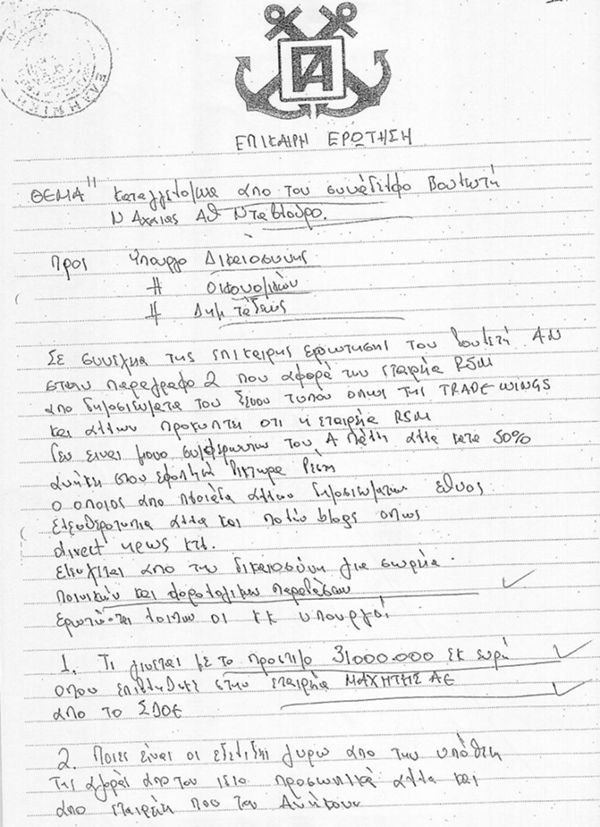 ΕΛΛΗΝΙΚΗ
ΠΑ
ΕΠΙΚΑΙΡΗ ΕΡΩΤΗΣΗ
ΘΕΜΑ" Καταγγελομενα απο τον συναδελφο Βουλευτη
Ν Αχαιας Αθ Νταβλουρο.
Προς Υπουργο Δικαιοσυνης
〃 Οικονομικων
〃 Δημ τάξεως
Σε συνεχεια της επικαιρης ερωτησης του βουλευτή ΑΝ
στην παραγραφο 2 που αφορά την εταιρεια RSM
απο δημοσιευματα του ξενου τυπου οπως της TRADE WINGS
και αλλων προκυπτει οτι η εταιρεια RSM
δεν ειναι μονο συμφεροντων του Α Πάλλη αλλα κατα 50%
ανήκει στον εφοπλιστή Ρέστη
ο οποιος απο πλειαδα αλλων δημοσιευματων εθνος
ελευθεροτυπια αλλα και πολλών blogs οπως
direct news κτλ.
Ελεγχεται απο την δικαιοσύνη για σωρεία
ποινικών και φορολογικων παραβάσεων
Ερωτώνται λοιπον οι κκ υπουργοί
1. Τι γινεται με το προστιμο 31000.000 εκ ευρώ
οπου επιβληθηκε στην εταιρεια ΜΑΧΗΤΗΣ ΑΕ
απο το ΣΔΟΕ
2. Ποιες είναι οι εξελιξεις γυρω απο την υπόθεση
της αγοράς απο τον ιδιο προσωπικά αλλα και
απο εταιρείες που του Ανήκουν